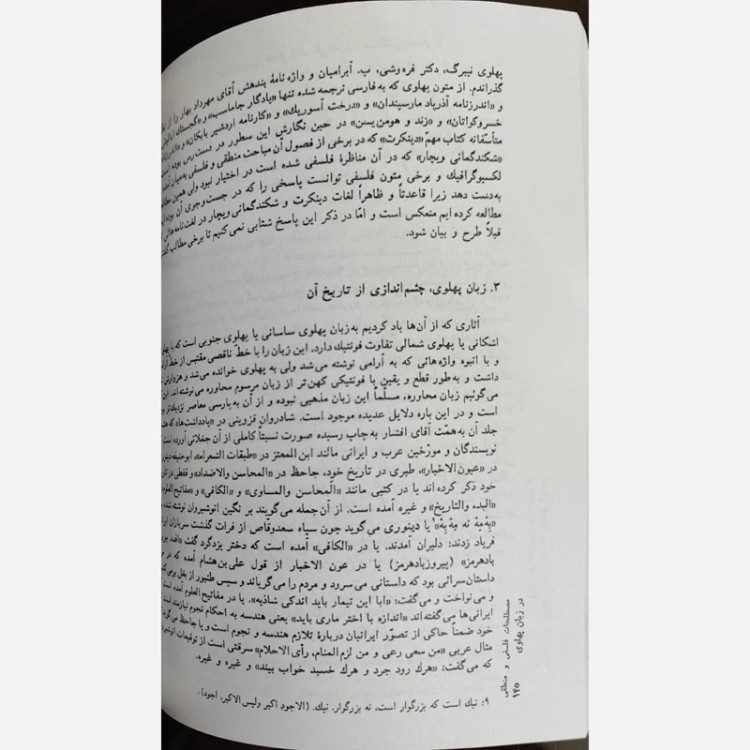 پهلوی نیبرگ، دکتر فره‌وشی، پ. آبرامیان و واژه نامهٔ بندهش آقای مهرداد بهار را از نظر
گذراندم. از متون پهلوی که به فارسی ترجمه شده تنها «یادگار جاماسب» و «گجستک
و «اندرزنامه آذرپاد مارسپندان» و «درخت آسوریک» و «کارنامه اردشیر بابکان» و
خسروکواتان» و «زند و هومن یسن» در حین نگارش این سطور در دست‌رس بوده است
متأسفانه کتاب مهمّ «دینکرت» که در برخی از فصول آن مباحث منطقی و فلسفی به‌میان
«شکندگمانی ویچار» که در آن مناظرهٔ فلسفی شده است در اختیار نبود ولی همین
لکسیوگرافیك و برخی متون فلسفی توانست پاسخی را که در جست‌وجوی آن بوده
به‌دست دهد زیرا قاعدتاً و ظاهراً لغات دینکرت و شکندگمانی ویچار در لغت‌نامه‌هائی
مطالعه کرده ایم منعکس است و امّا در ذکر این پاسخ شتابی نمی‌کنیم تا برخی مطالب
قبلاً طرح و بیان شود.
۳. زبان پهلوی، چشم‌اندازی از تاریخ آن
آثاری که از آن‌ها یاد کردیم به‌زبان پهلوی ساسانی یا پهلوی جنوبی است که با
اشکانی یا پهلوی شمالی تفاوت فونتیك دارد. این زبان را با خطّ ناقصی مقتبس از خط
و با انبوه واژه‌هائی که به آرامی نوشته می‌شد ولی به پهلوی خوانده می‌شد و هزوارش
داشت و به‌طور قطع و یقین با فونتیکی کهن‌تر از زبان مرسوم محاوره می‌نوشته اند. این
می‌گوئیم زبان محاوره، مسلّماً این زبان مذهبی نبوده و از آن به پارسی معاصر نزدیك‌تر
است و در این باره دلایل عدیده موجود است. شادروان قزوینی در «یادداشت‌ها» که
جلد آن به‌همّت آقای افشار به‌چاپ رسیده صورت نسبتاً کاملی از آن جفلاتی آورده است
نویسندگان و مورّخین عرب و ایرانی مانند ابن المعتز در «طبقات الشعراء»، ابوحنیفه
در «عیون‌الاخبار»، طبری در تاریخ خود، جاحظ در «المحاسن والاضداد» و قفطی در
خود ذکر کرده اند یا در کتبی مانند «المحاسن والمساوی» و «الکافی» و «مفاتیح
«البدء والتاریخ» و غیره آمده است. از آن‌جمله می‌گویند بر نگین انوشیروان نوشته شده
«به‌مه نه مه به»⁹ یا دینوری می‌گوید چون سپاه سعدوقاص از فرات گذشت سربازان
فریاد زدند: دلیران آمدند. یا در «الکافی» آمده است که دختر یزدگرد گفت «افه
بادهرمز» (پیروزبادهرمز) یا در عون الاخبار از قول علی‌بن‌هشام آمده که در
داستان‌سرائی بود که داستانی می‌سرود و مردم را می‌گریاند و سپس طنبور از بغل
و می‌نواخت و می‌گفت: «ابا این تیمار باید اندکی شاذیه». یا در مفاتیح العلوم آمده است
ایرانی‌ها می‌گفته‌اند «اندازه با اختر ماری باید» یعنی هندسه به احکام نجوم نیازمند
خود ضمناً حاکی از تصوّر ایرانیان دربارهٔ تلازم هندسه و نجوم است و یا جاحظ می‌گوید
مثال عربی «من سعی رعی و من لزم المنام، رأی الاحلام» سرقتی است از توقیعات
که می‌گفت: «هرك رود جرد و هرك خسبد خواب بیند» و غیره و غیره.
۹: نیك است که بزرگوار است، نه بزرگوار، نیك. (الاجود اکبر ولیس الاکبر، اجود).
مصطلحات فلسفی و منطقی
در زبان پهلوی
۱۴۵